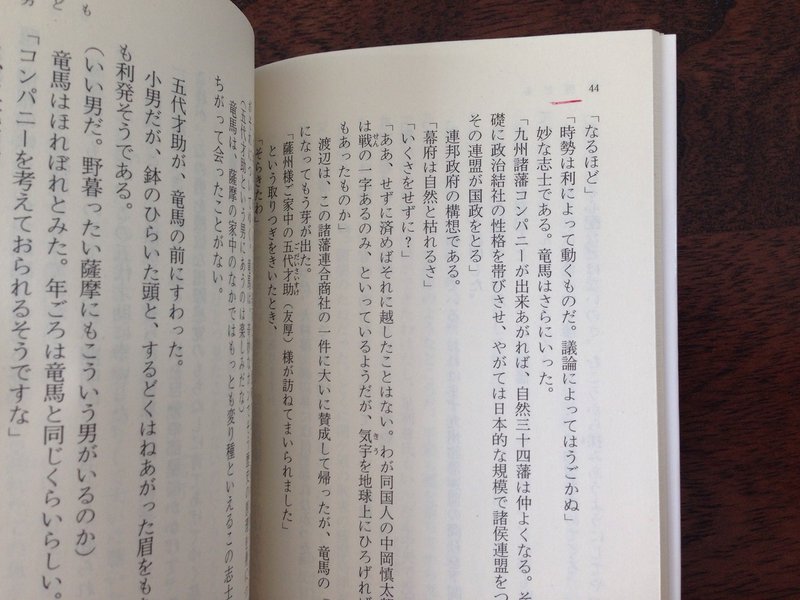 44
「なるほど」
「時勢は利によって動くものだ。議論によってはうごかぬ」
妙な志士である。竜馬はさらにいった。
「九州諸藩コンパニーが出来あがれば、自然三十四藩は仲よくなる。そ
礎に政治結社の性格を帯びさせ、やがては日本的な規模で諸侯連盟をつ
その連盟が国政をとる」
連邦政府の構想である。
「幕府は自然と枯れるさ」
「いくさをせずに?」
「ああ、せずに済めばそれに越したことはない。わが同国人の中岡慎太
は戦の一字あるのみ、といっているようだが、気宇を地球上にひろげれば
もあったものか」
渡辺は、この諸藩連合商社の一件に大いに賛成して帰ったが、竜馬の
になってもう芽が出た。
「薩州様ご家中の五代才助(友厚)様が訪ねてまいられました」
という取りつぎをきいたとき、
「そらきたわ」
(五代才助という男にあうのは楽しみだな)
竜馬は、薩摩の家中のなかではもっとも変り種といえるこの志士
ちがって会ったことがない。
五代才助が、竜馬の前にすわった。
小男だが、鉢のひらいた頭と、するどくはねあがった眉をも
も利発そうである。
(いい男だ。野暮ったい薩摩にもこういう男がいるのか)
竜馬はほれぼれとみた。年ごろは竜馬と同じくらいらしい。
「コンパニーを考えておられるそうですな」